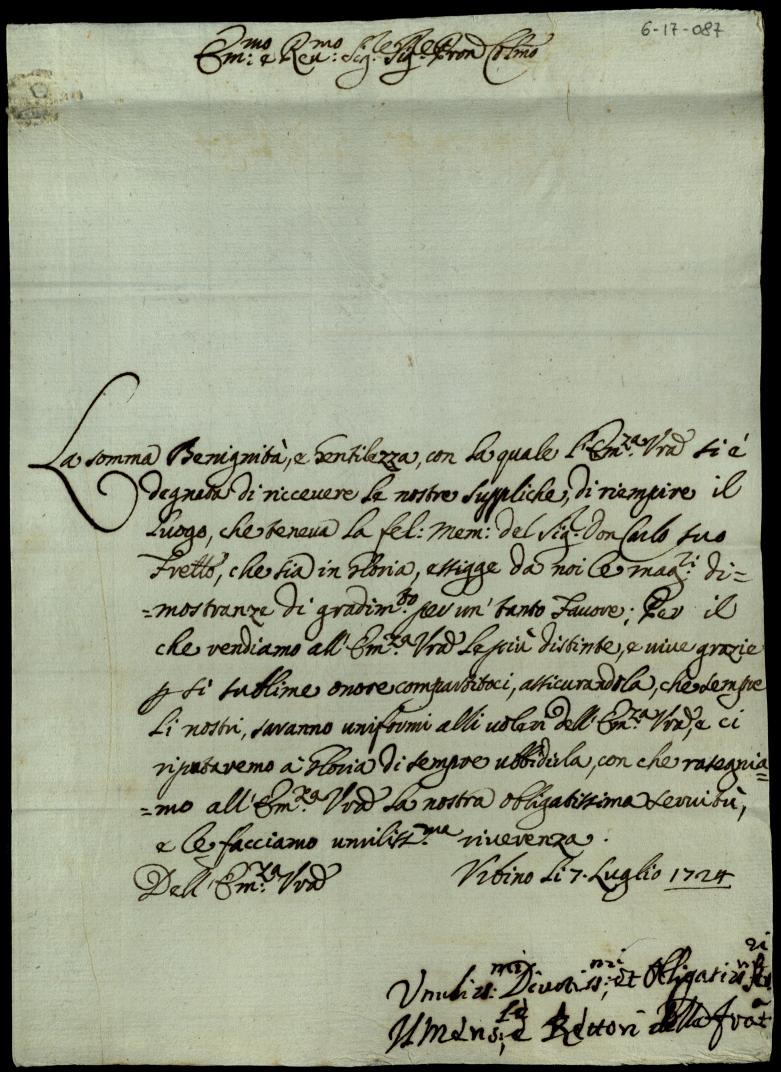 6-17-087
Em:mo e Reu:mo Sig:re Sig:re Pron Colmo
La somma Benignità, e Gentilezza, con la quale l'Em:za Vra si è
degnata di riccevere le nostre suppliche, di riempire il
Luogo, che teneva la fel: mem: del Sig:r Don Carlo suo
Frello, che sia in Gloria, essigge da noi le mag:ri di=
=mostranze di gradim:to per un' tanto Favore; Per il
che rendiamo all' Em:za Vra le più distinte, e vive grazie
p si sublime onore compartitoci, assicurandola, che sempre
li nostri, saranno uniformi alli voleri dell' Em:za Vra, e ci
riputaremo a Gloria di sempre ubbidirla, con che rasegnia=
=mo all' Em:za Vra la nostra obligatissima servitù,
e le facciamo umiliss:ma riverenza.
Dell' Em:za Vra Vrbino li 7. Luglio 1724
Vmiliss:mi Divotiss:mi, et Obligatiss:mi
Il Mens:le, e Rettori della Frat:a